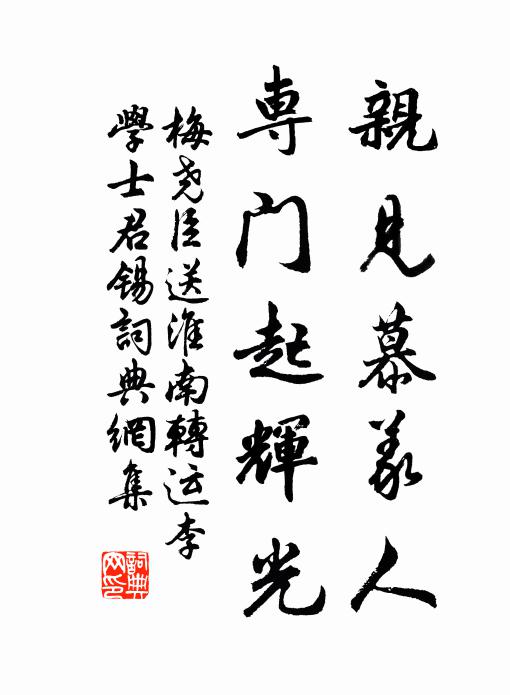 親見慕義人
專門起輝光
梅堯臣送淮南轉运李
學士君錫詞典網集
詞典网印